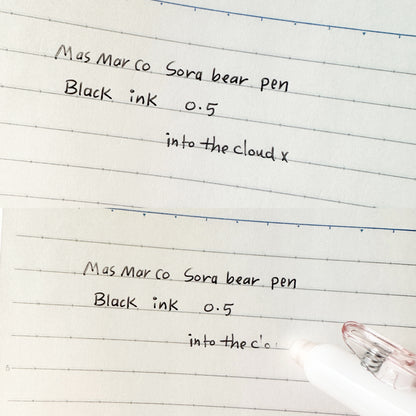 Mas Mar Co Sora bear pen
Black ink 0.5
into the cloud x
Mas Mar Co Sora bear pen
Black ink 0.5
into the c'o